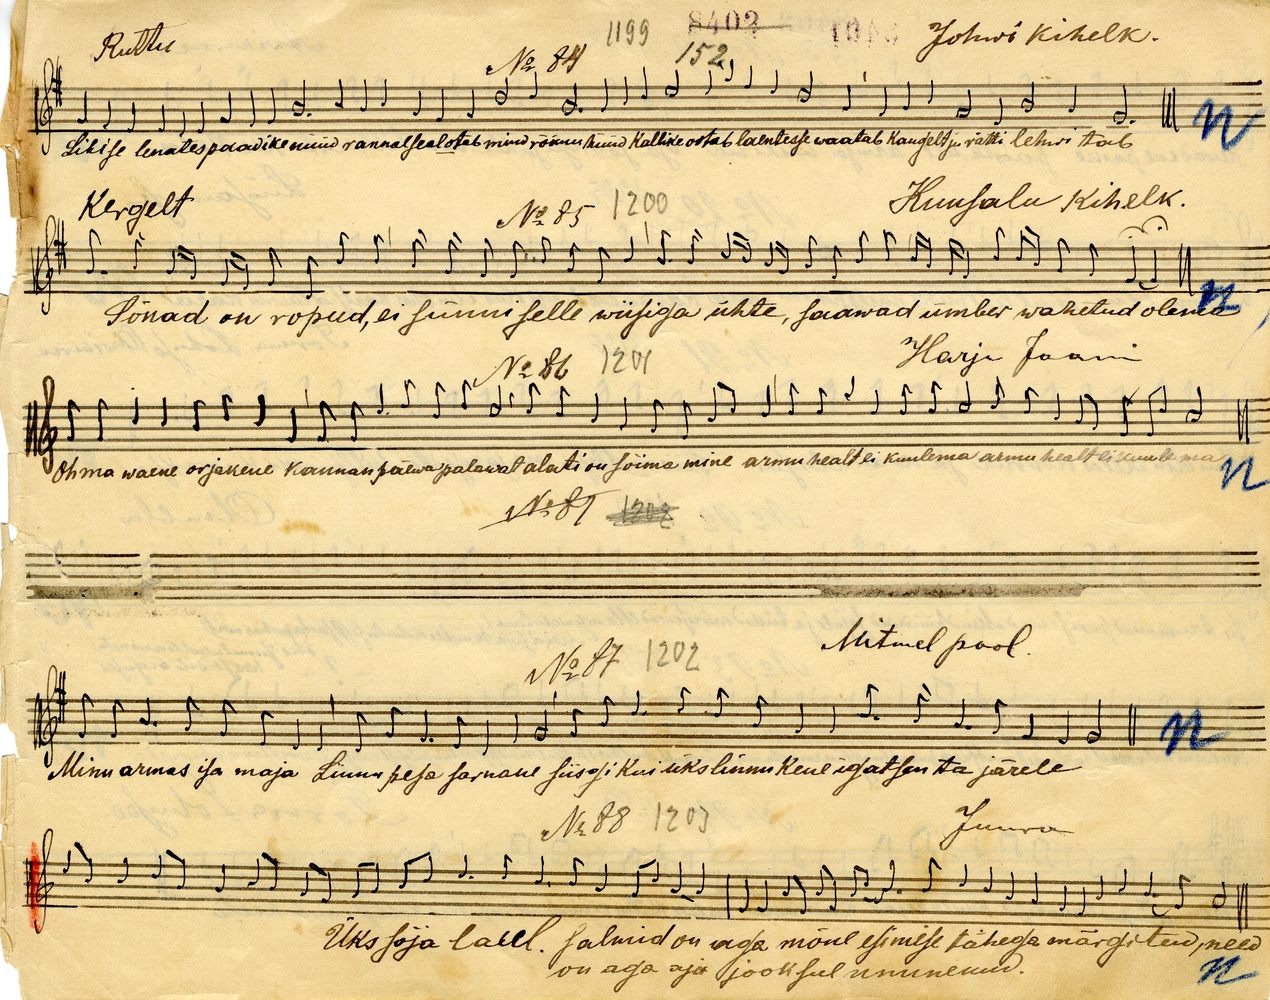 Ruttu № 84 1199 8402 152 Johwi kihelk.
Likise lenates paadikene nüüd rannal seal ootab mind rõõmu hüüd Kallike ootab laentesse waatab Kaugelt ju rätti lehwitab
Kergelt № 85 1200 Kuusalu Kihelk.
Sõnad on ropud, ei sünni selle wiisiga ühte, saawad ümber wahetud olema
№ 86 1201 Harju Jaani
Oh ma waene orjakene kannan päewa palawat alati on sõima mine armu healt ei kuulema armu healt ei kuulema
№ 87
№ 87 1202 Mitmel pool.
Minu armas isa maja Linnu pesa sarnane siisgi kui üks linnukene igatsen ta järele
№ 88 1203 Juuru
Üks sõja laul. Salmid on aga mõne esimese tähega märgitud, need
on aga aja jooksul ununenud.